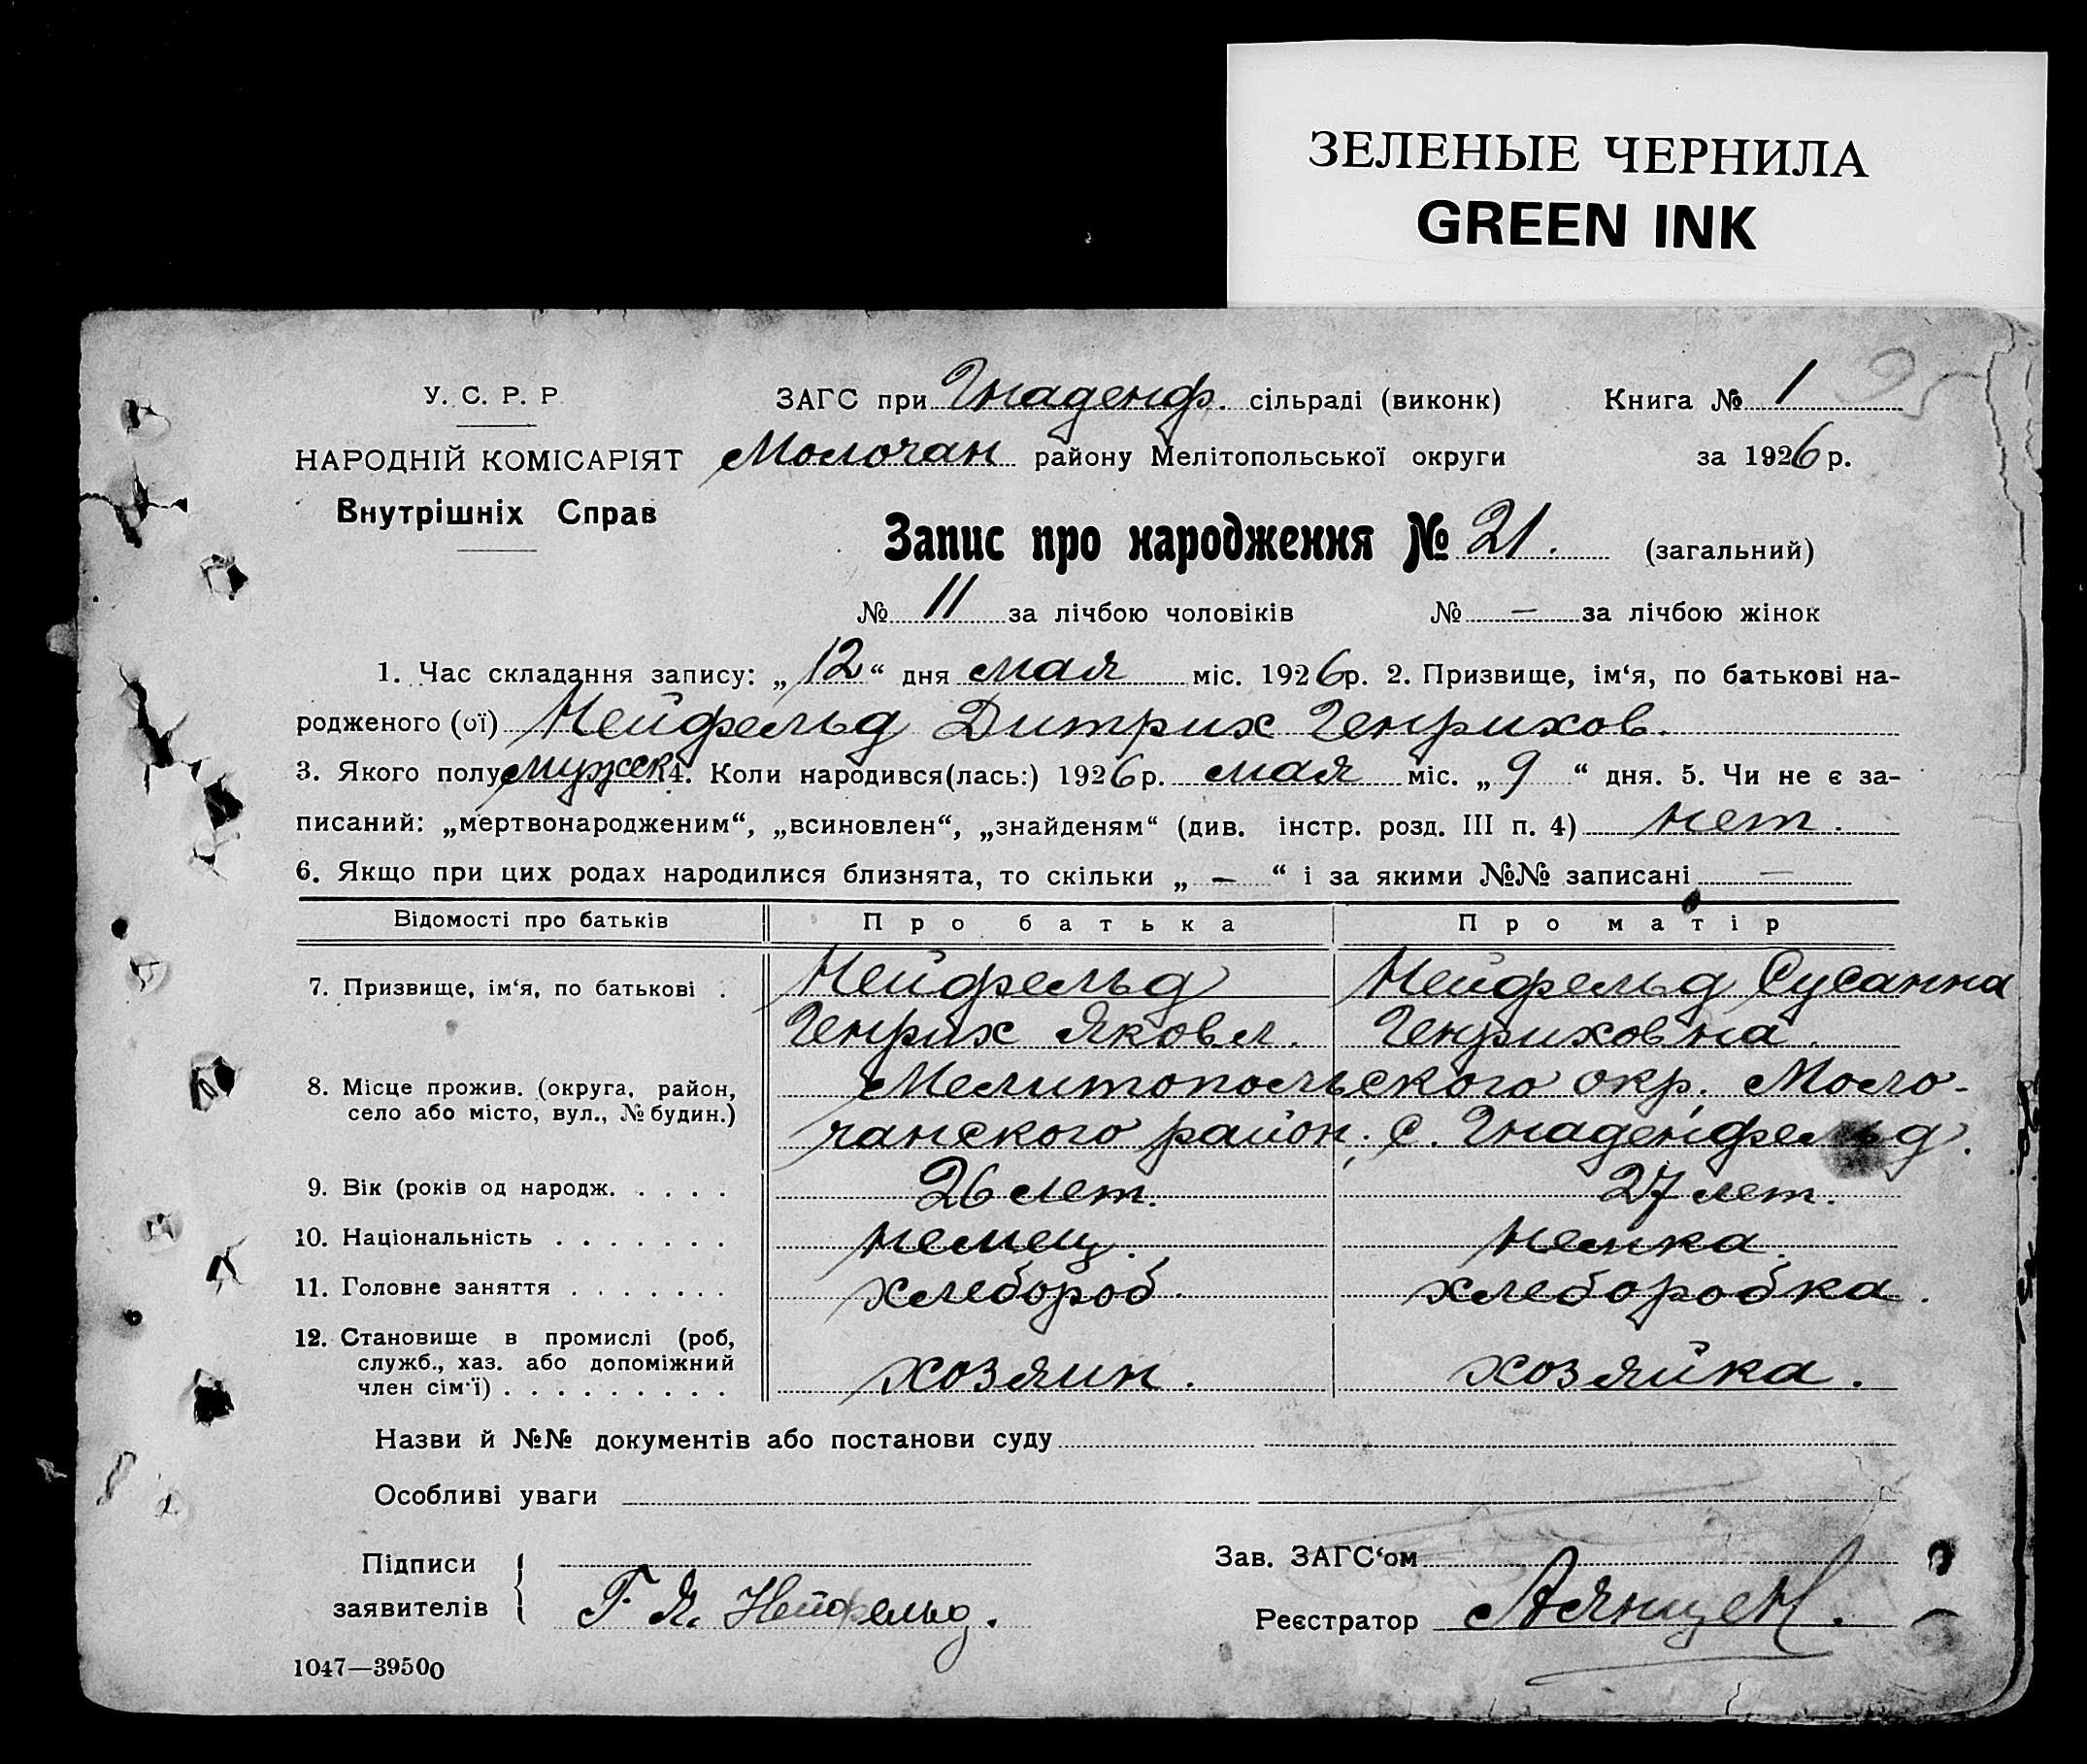 ЗЕЛЕНЫЕ ЧЕРНИЛА
GREEN INK
У. С. Р. Р
НАРОДНІЙ КОМІСАРІЯТ
Внутрішніх Справ
ЗАГС при Гнаденф. сільраді (виконк) Книга № 1 95
Молочан району Мелітопольської округи за 1926 р.
Запис про народження № 21. (загальний)
№ 11 за лічбою чоловіків № — за лічбою жінок
1. Час складання запису: „12“ дня мая міс. 1926р. 2. Призвище, ім‘я, по батькові на-
родженого (ої) Нейфельд Дитрих Генрихов.
3. Якого полу мужск 4. Коли народився(лась:) 1926р. мая міс. „9“ дня. 5. Чи не є за-
писаний: „мертвонародженим“, „всиновлен“, „знайденям“ (див. інстр. розд. III п. 4) нет.
6. Якщо при цих родах народилися близнята, то скільки „—“ і за якими №№ записані —
Відомості про батьків Про батька Про матір
7. Призвище, ім‘я, по батькові . Нейфельд Нейфельд Сусанна
Генрих Яковл. Генриховна.
8. Місце прожив. (округа, район, Мелитопольского окр. Моло-
село або місто, вул., № будин.) чанского район. с. Гнаденфельд.
9. Вік (років од народж. . . . . 26 лет. 27 лет.
10. Національність . . . . . . . немец. немка.
11. Головне заняття . . . . . . . хлебороб. хлеборобка.
12. Становище в промислі (роб,
служб., хаз. або допоміжний хозяин. хозяйка.
член сім‘ї) . . . . . . . . . .
Назви й №№ документів або постанови суду
Особливі уваги
Підписи Зав. ЗАГС‘ом
заявителів Г. Я. Нейфельд. Реєстратор АЯнцен.
1047—39500